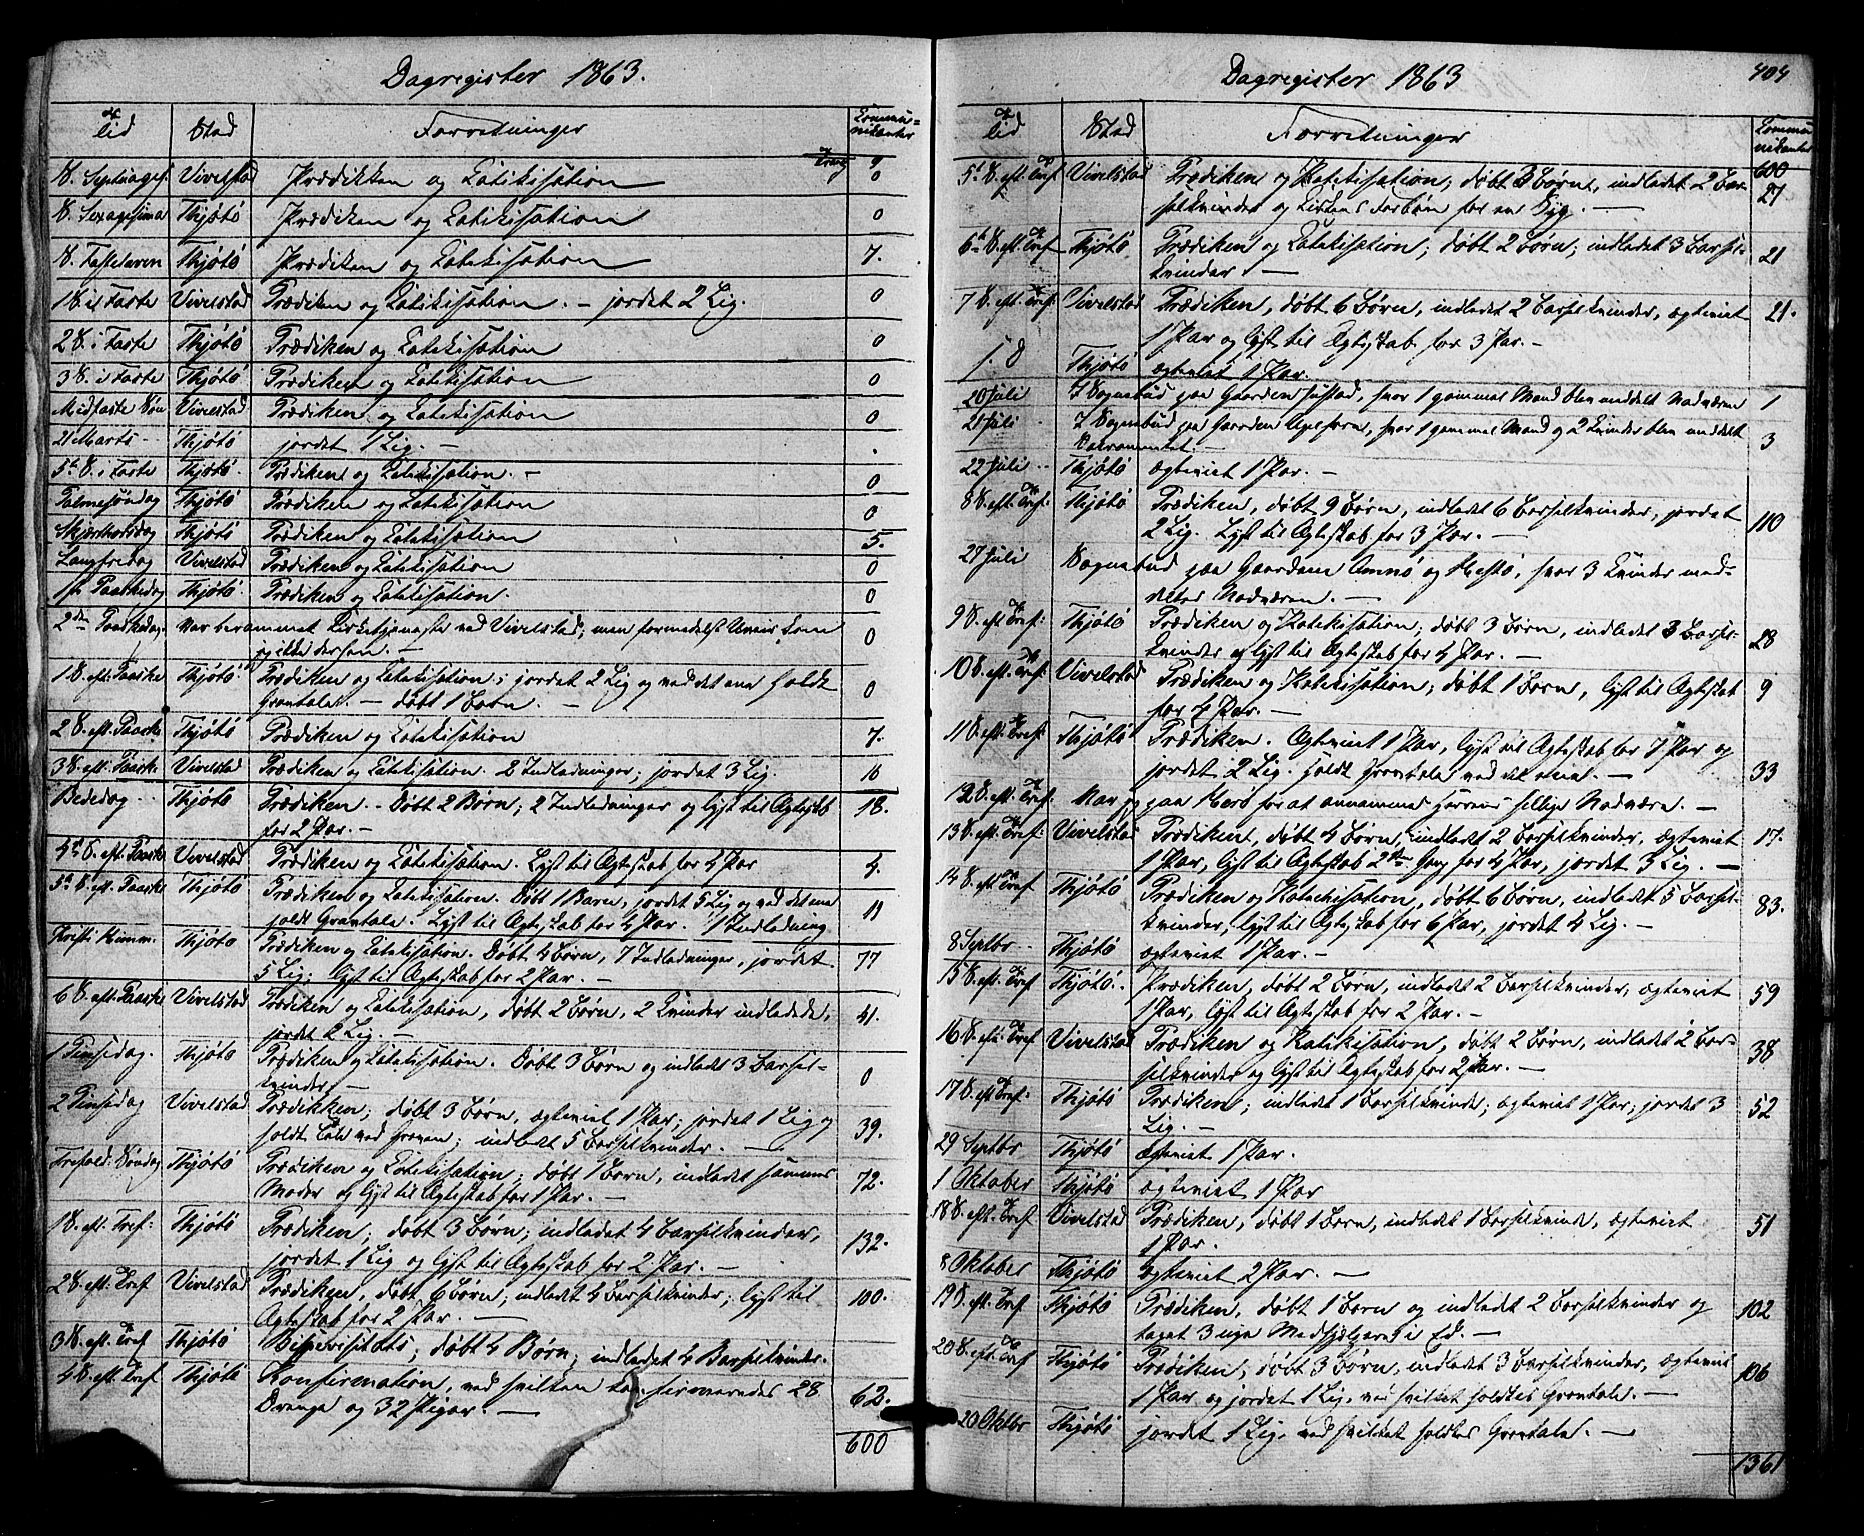 Dagregister 1863.
Tid Stad Forretninger Commu-
nikanter
Transp. 9
S. Septuages. Vivelstad Prædikken og Catekisation 0
S. Sexagesima Thjøtø Prædiken og Catekisation 0
S. Fastelaven Thjøtø Prædiken og Catekisation 7.
1 S. i Faste Vivelstad Prædiken og Catekisation. – jordet 2 Lig. 0
2 S. i Faste Thjøtø Prædiken og Catekisation 0
3 S. i Faste Thjøtø Prædiken og Catekisation 0
Midfaste Søn Vivelstad Prædiken og Catekisation 0
21 Marts Thjøtø jordet 1 Lig. –
5t S. i Faste Thjøtø. Prædiken og Catekisation. – 0
Palmesøndag Thjøtø Prædiken og Catekisation 0
Skjærthorsdag Thjøtø Prædiken og Catekisation 5.
Langfredag Vivelstad Prædiken og Catekisation 0
1ste Paaskedag Thjøtø. Prædiken og Catekisation. 0
2den Paaskedag var berammet Kirketjeneste ved Vivelstad; men formedelst Uveir kom 0
jeg ikke dersen. –
1 S. eft. Paaske Thjøtø Prædiken og Catekisation; jordet 2 Lig og ved det ene holdt 0
Gravtale. – døbt 1 Barn. –
2 S. eft. Paaske Thjøtø Prædiken og Catekisation 7.
3 S. eft. Paaske. Vivelstad Prædiken og Catekisation. 2 Indledninger; jordet 3 Lig. 16
Bededag Thjøtø Prædiken. – Døbt 2 Børn; 2 Indledninger og lyst til Ægteskb 18.
for 2 Par. –
4de S. eft. Paaske Vivelstad Prædiken og Catekisation. Lyst til Ægteskab for 4 Par 4.
5te S. eft. Paaske Thjøtø Prædiken og Catekisation. Døbt 1 Barn, jordet 5 Lig og ved det ene 11
holdt Gravtale. Lyst til Ægteskab for 4 Par. 1 Indledning
Kristi Himm. Thjøtø Prædiken og Catekisation. Døbt 4 Børn, 7 Indledninger, jordet 77
5 Lig; lyst til Ægteskab for 2 Par. –
6 S. eft. Paaske Vivelstad Prædiken og Catekisation, døbt 2 Børn, 2 Kvinder indledede, 41.
jordet 2 Lig. –
1 Pinsedag. Thjøtø Prædiken og Catekisation. Døbt 3 Børn og indledet 3 Barsel-
kvinder – 0
2 Pinsedag Vivelstad Prædikken; døbt 3 Børn, ægteviet 1 Par; jordet 1 Lig og
holdt Tale ved Graven; indledet 5 Barselkvinder. – 39.
Trefold: Søndag Thjøtø Prædiken og Catekisation; døbt 1 Barn, indledet sammes 72.
Moder og lyst til Ægteskab for 1 Par. –
1 S. eft. Tref: Thjøtø Prædiken; døbt 3 Børn; indledet 4 Barselkvinder, 132.
jordet 1 Lig og lyst til Ægteskab for 2 Par. –
2 S. eft. Tref Vivelstad Prædiken, døbt 6 Børn; indledet 4 Barselkvinder; lyst til 100.
Ægteskab for 2 Par. –
3 S. eft. Tref Thjøtø Bispevisitats; døbt 4 Børn; indledet 4 Barselkvinder.
4 S. eft. Tref Thjøtø Konfirmation, ved hvilken konfirmeredes 28
Drenge og 32 Piger. – 62.
600
Dagregister 1863 404
Tid Stad Forretninger Commu
nikanter
600
5t S. eft. Tref Vivelstad Prædiken og Katekisation; døbt 3 Børn, indledet 2 Bar- 27
selkvinder og Kirkens Forbøn for en Syg. –
6te S. eft. Tref Thjøtø. Prædiken og Catekisation; døbt 2 Børn; indledet 3 Barsel- 21
kvinder. –
7 S. eft. Tref: Vivelstad Prædiken, døbt 6 Børn, indledet 2 Barselkvinder, ægteviet 21.
1 Par og lyst til Ægteskab for 3 Par. –
Thjøtø ægteviet 1 Par.
20 Juli I Sognebud paa Gaarden , hvor 1 gammel Mand blev meddelt Nadveren 1
21 Juli I Sognebud paa Gaarden , hvor 1 gammel Mand og 2 Kvinder blev meddelt 3
Sakramentet. –
22 Juli Thjøtø ægteviet 1 Par. –
8 S. eft. Tref: Thjøtø Prædiken, døbt 9 Børn, indledet 6 Barselkvinder, jordet 110
2 Lig. Lyst til Ægteskab for 3 Par. –
27 Juli Sognebud paa Gaardene og , hvor 3 Kvinder med-
deltes Nadveren. –
9 S. eft Tref: Thjøtø Prædiken og Katekisation; døbt 3 Børn, indledet 3 Barsel- 28
kvinder og lyst til Ægteskab for 4 Par. –
10 S. eft. Tref: Vivelstad Prædiken og Katekisation; døbt 1 Barn, lyst til Ægteskab 9
for 4 Par. –
11 S. eft. Tref: Thjøtø Prædiken. Ægteviet 1 Par, lyst til Ægteskab for 7 Par og
jordet 2 Lig. holdt Gravtale ved det ene. – 33
12 S. eft. Tref: Var jeg paa Herø for at annamme Herrens hellige Nadvere. –
13 S. eft. Tref: Vivelstad Prædiken, døbt 4 Børn, indledet 2 Barselkvinder, ægteviet 17.
1 Par, lyst til Ægteskab 2den Gang for 4 Par, jordet 3 Lig. –
14 S. eft Tref Thjøtø Prædiken og Katechisation, døbt 6 Børn, indledet 5 Barsel- 83.
kvinder, lyst til Ægteskab for 6 Par, jordet 4 Lig. –
8 Septbr. Thjøtø ægteviet 1 Par. –
15 S. eft. Tref Thjøtø. Prædiken, døbt 2 Børn, indledet 2 Barselkvinder, ægteviet 59
1 Par, lyst til Ægteskab for 2 Par. –
16 S. eft. Tref Vivelstad Prædiken og Katekisation, døbt 2 Børn, indledet 2 Bar- 38
selkvinder og lyst til Ægteskab for 2 Par. –
17 S. eft Tref: Thjøtø Prædiken; indledet 1 Barselkvinde; ægteviet 1 Par; jordet 3 52
Lig. –
29 Septbr Thjøtø ægteviet 1 Par.
1 Oktober Thjøtø ægteviet 1 Par
18 S. eft. Tref Vivelstad Prædiken, døbt 1 Barn, indledet 1 Barselkvinde, ægteviet 51
1 Par.
8 Oktober Thjøtø ægteviet 2 Par. –
19 S. eft. Tref Thjøtø Prædiken, døbt 1 Barn og indledet 2 Barselkvinder og 102
taget 3 nye Medhjælpere i Ed. –
20 S. eft. Tref Thjøtø Prædiken; døbt 3 Børn, indledet 3 Barselkvinder, ægteviet 106
1 Par og jordet 1 Lig, ved hvilket holdtes Gravtale. –
20 Oktbr Thjøtø jordet 1 Lig, ved hvilket holdtes Gravtale. –
1361